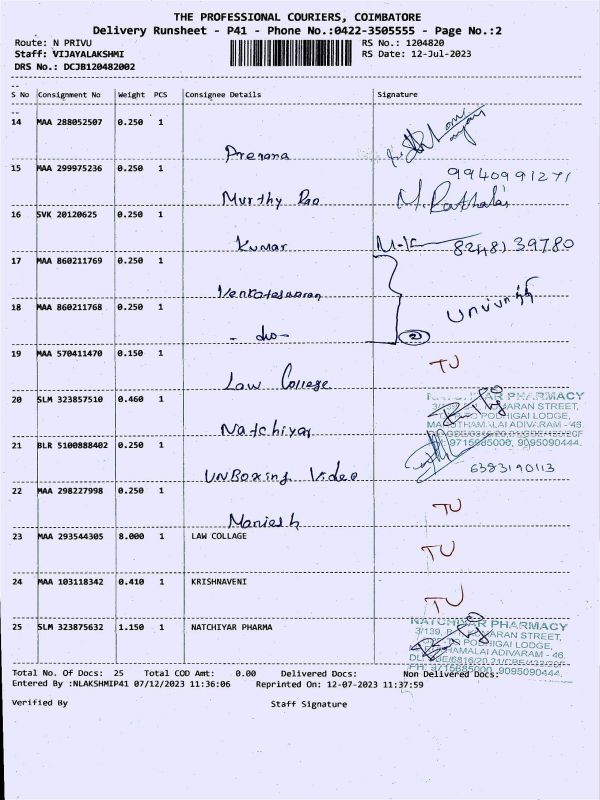 THE PROFESSIONAL COURIERS, COIMBATORE
Delivery Runsheet - P41 - Phone No.:0422-3505555 - Page No.:2
Route: N PRIVU RS No.: 1204820
Staff: VIJAYALAKSHMI RS Date: 12-Jul-2023
DRS No.: DCJB120482002
S No Consignment No Weight PCS Consignee Details Signature
14 MAA 288052507 0.250 1
Prerana
15 MAA 299975236 0.250 1 9940991271
Murthy Rao
16 SVK 20120625 0.250 1
Kumar 8248139780
17 MAA 860211769 0.250 1
Venkateswaran
18 MAA 860211768 0.250 1
- do - 2
19 MAA 570411470 0.150 1 TU
Law College
20 SLM 323857510 0.460 1 NATCHIYAR PHARMACY
Natchiyar
21 BLR 5100888402 0.250 1 9715685000, 9095090444.
6383190113
UNBoxing Video
22 MAA 298227998 0.250 1 TU
Maniesh
23 MAA 293544305 8.000 1 LAW COLLAGE TU
24 MAA 103118342 0.410 1 KRISHNAVENI TU
25 SLM 323875632 1.150 1 NATCHIYAR PHARMA NATCHIYAR PHARMACY
Total No. Of Docs: 25 Total COD Amt: 0.00 Delivered Docs: Non Delivered Docs:
Entered By :NLAKSHMIP41 07/12/2023 11:36:06 Reprinted On: 12-07-2023 11:37:59
Verified By Staff Signature